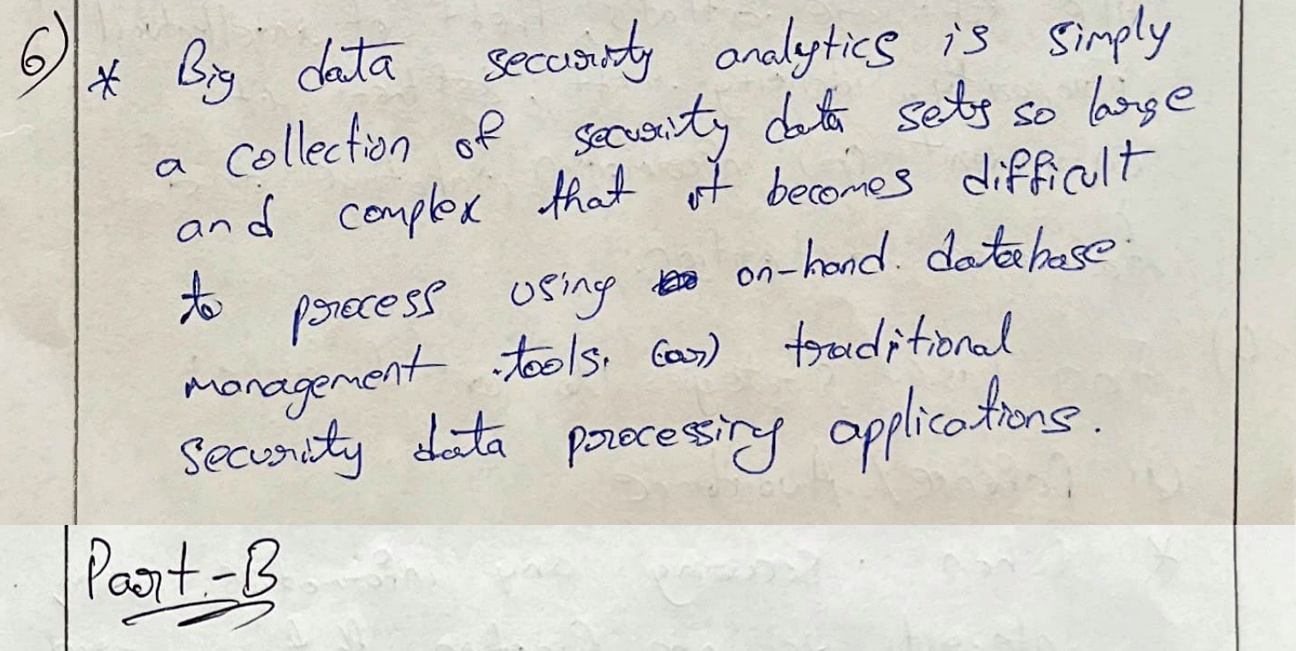 6) * Big data security analytics is simply
a collection of security data sets so large
and complex that it becomes difficult
to process using on-hand. database
management tools. (or) traditional
security data processing applications.
Part-B